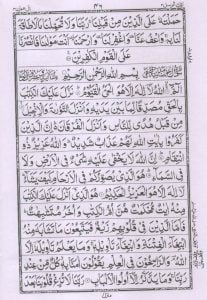 ٤٦
حَمَلْتَهٗ عَلَى الَّذِیْنَ مِنْ قَبْلِنَا ۚ رَبَّنَا وَلَا تُحَمِّلْنَا مَا لَا طَاقَةَ
لَنَا بِهٖ ۚ وَاعْفُ عَنَّا وَاغْفِرْ لَنَا وَارْحَمْنَا اَنْتَ مَوْلٰىنَا فَانْصُرْنَا
عَلَى الْقَوْمِ الْكٰفِرِیْنَ
بِسْمِ اللّٰهِ الرَّحْمٰنِ الرَّحِیْمِ
الٓمّٓ اللّٰهُ لَاۤ اِلٰهَ اِلَّا هُوَ الْحَیُّ الْقَیُّوْمُ نَزَّلَ عَلَیْكَ الْكِتٰبَ
بِالْحَقِّ مُصَدِّقًا لِّمَا بَیْنَ یَدَیْهِ وَاَنْزَلَ التَّوْرٰىةَ وَالْاِنْجِیْلَ
مِنْ قَبْلُ هُدًی لِّلنَّاسِ وَاَنْزَلَ الْفُرْقَانَ اِنَّ الَّذِیْنَ
كَفَرُوْا بِاٰیٰتِ اللّٰهِ لَهُمْ عَذَابٌ شَدِیْدٌ وَاللّٰهُ عَزِیْزٌ ذُو
انْتِقَامٍ اِنَّ اللّٰهَ لَا یَخْفٰی عَلَیْهِ شَیْءٌ فِی الْاَرْضِ وَلَا
فِی السَّمَآءِ هُوَ الَّذِیْ یُصَوِّرُكُمْ فِی الْاَرْحَامِ كَیْفَ یَشَآءُ
لَاۤ اِلٰهَ اِلَّا هُوَ الْعَزِیْزُ الْحَكِیْمُ هُوَ الَّذِیْۤ اَنْزَلَ عَلَیْكَ الْكِتٰبَ
مِنْهُ اٰیٰتٌ مُّحْكَمٰتٌ هُنَّ اُمُّ الْكِتٰبِ وَاُخَرُ مُتَشٰبِهٰتٌ
فَاَمَّا الَّذِیْنَ فِیْ قُلُوْبِهِمْ زَیْغٌ فَیَتَّبِعُوْنَ مَا تَشَابَهَ مِنْهُ
ابْتِغَآءَ الْفِتْنَةِ وَابْتِغَآءَ تَاْوِیْلِهٖ وَمَا یَعْلَمُ تَاْوِیْلَهٗۤ اِلَّا
اللّٰهُ وَالرّٰسِخُوْنَ فِی الْعِلْمِ یَقُوْلُوْنَ اٰمَنَّا بِهٖ كُلٌّ مِّنْ عِنْدِ
رَبِّنَا وَمَا یَذَّكَّرُ اِلَّاۤ اُولُوا الْاَلْبَابِ رَبَّنَا لَا تُزِغْ قُلُوْبَنَا بَعْدَ